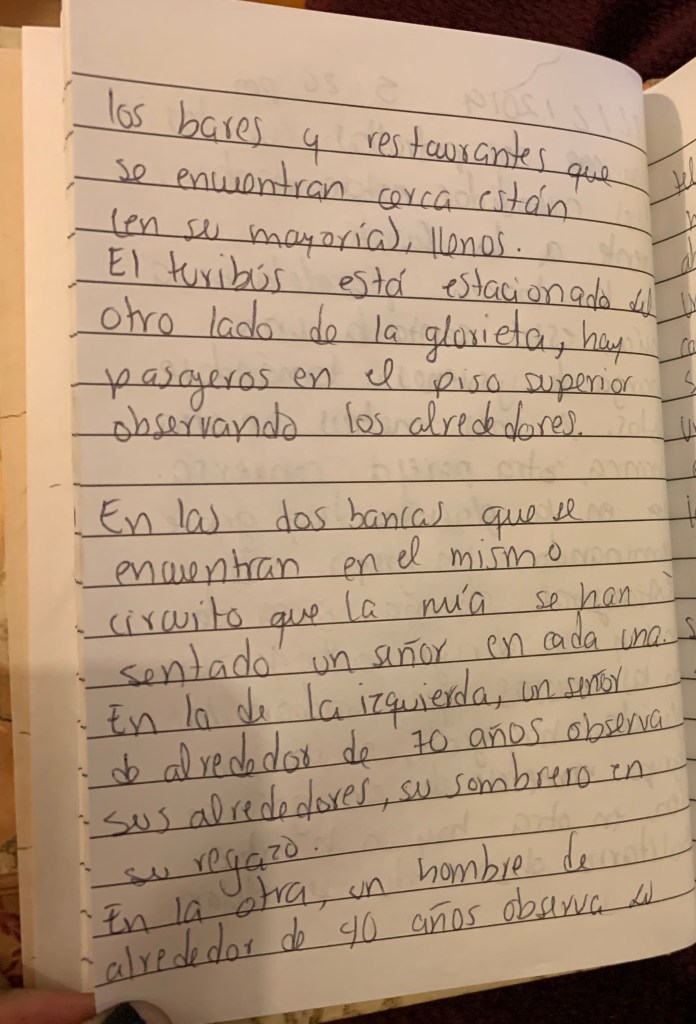 los bares y restaurantes que
se encuentran cerca están
(en su mayoría), llenos.
El turibús está estacionado del
otro lado de la glorieta, hay
pasajeros en el piso superior
observando los alrededores.
En las dos bancas que se
encuentran en el mismo
circuito que la mía se han
sentado un señor en cada una.
En la de la izquierda, un señor
de alrededor de 70 años observa
sus alrededores, su sombrero en
su regazo.
En la otra, un hombre de
alrededor de 40 años observa del